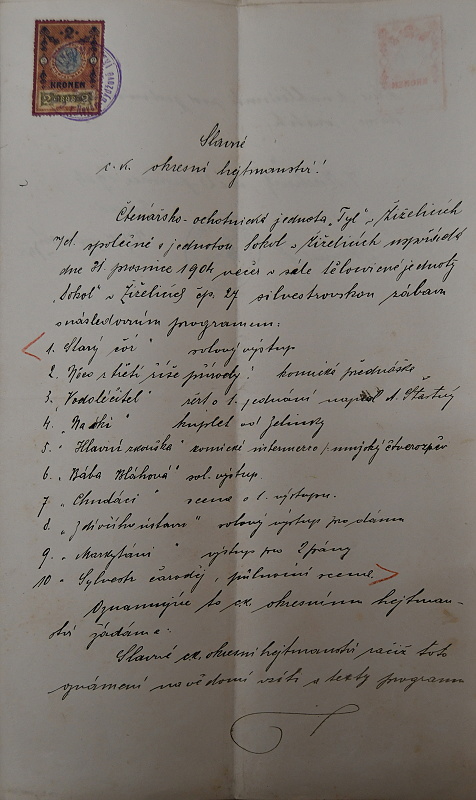 2
KRONEN
KRONEN
Slavné
c. k. okresní hejtmanství!
Čtenářsko-ochotnická jednota „Tyl“ v Žiželicích
společně s jednotou Sokol v Žiželicích uspořádá
dne 31. prosince 1904 večer v sále tělocvičné jednoty
„Sokol“ v Žiželicích čp. 27 silvestrovskou zábavu
s následovním programem:
1. „Starý “ solový výstup
2. Něco z třetí říše přírody! komická přednáška
3. „Vodoléčitel“ žert o 1. jednání napsal A. Šťastný
4. „ “ kuplet od Jelínky
5. „Hlavní zkouška“ komické intermezzo /: mužský čtverozpěv
6. „Bába Bláhová“ sol. výstup.
7. „Chudáci“ scena o 1. výstupu.
8. „Z dívčího ústavu“ solový výstup pro dámu
9. „Markytáni“ výstup pro 2 pány
10. „Sylvestr čaroděj, půlnoční scena.
Oznamujíce to c.k. okresnímu hejtman-
ství žádáme:
Slavné c.k. okresní hejtmanství račiž toto
oznámení na vědomí vzíti a texty programu